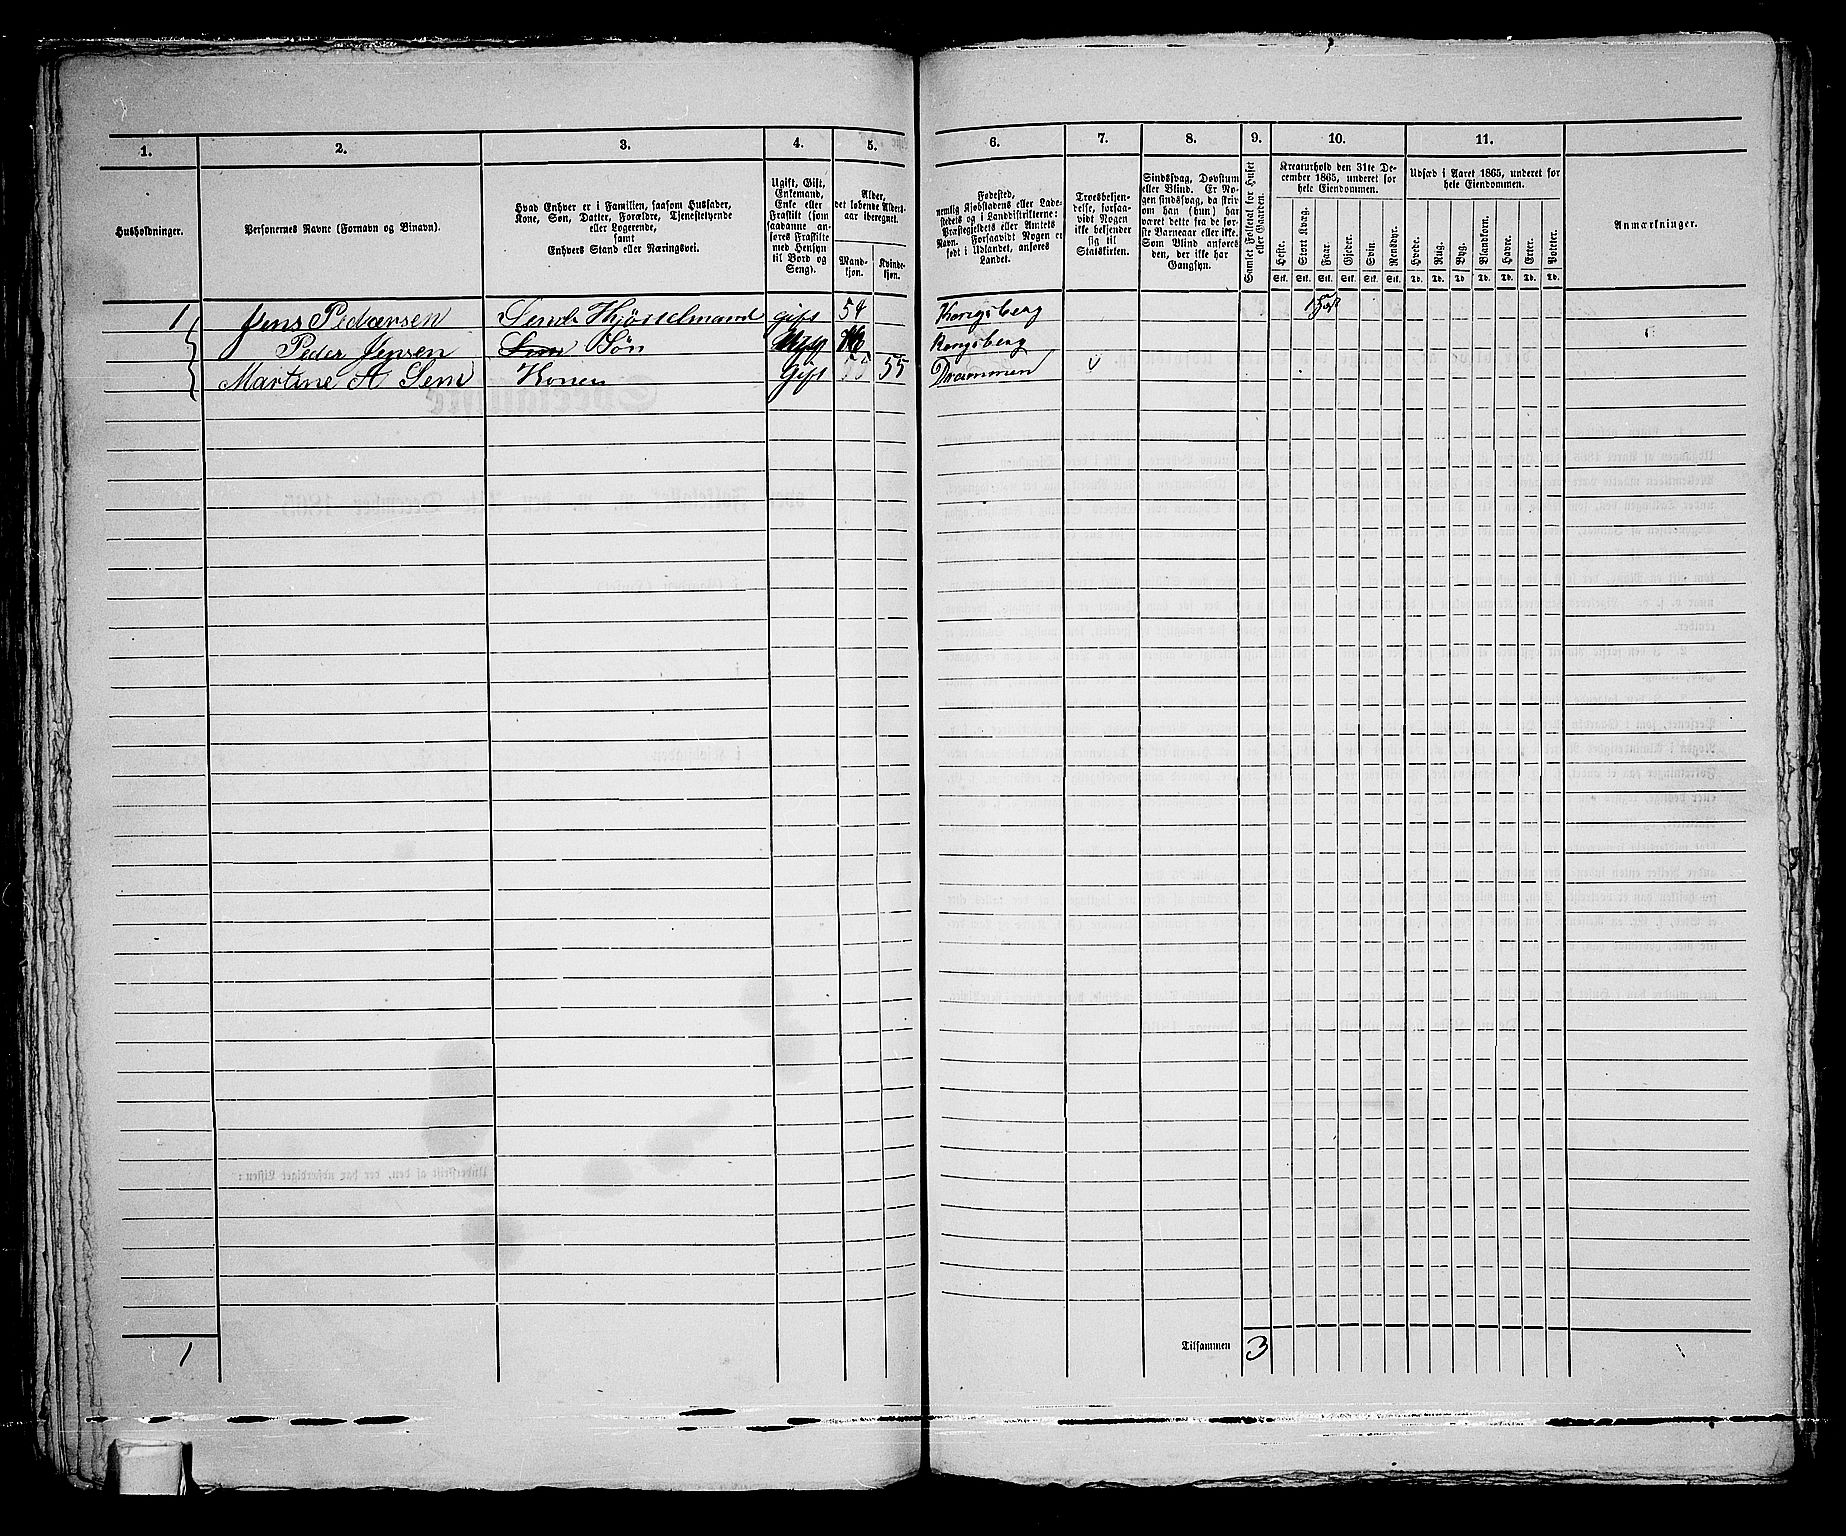 1. 2. 3. 4. 5. 6. 7. 8. 9. 10. 11.
Husholdninger.
Personernes Navne (Fornavn og Binavn).
Hvad Enhver er i Familien, saasom Husfader,
Kone, Søn, Datter, Forældre, Tjenestetyende
eller Logerende,
samt
Enhvers Stand eller Næringsvei.
Ugift, Gift,
Enkemand,
Enke eller
Fraskilt (som
saadanne an-
føres Fraskilte
med Hensyn
til Bord og
Seng).
Alder,
det løbende Alders-
aar iberegnet.
Mand-
kjøn.
Kvinde-
kjøn.
Fødested,
nemlig Kjøbstadens eller Lade-
stedets og i Landdistrikterne:
Præstegjeldets eller Amtets
Navn. Forsaavidt Nogen er
født i Udlandet, anføres
Landet.
Troesbekjen-
delse, forsaa-
vidt Nogen
ikke bekjender
sig til
Statskirken.
Sindssvag, Døvstum
eller Blind. Er No-
gen sindssvag, da skriv
om han (hun) har
været dette fra de før-
ste Barneaar eller ikke.
Som Blind anføres
den, der ikke har
Gangsyn.
Samlet Folketal for Huset
eller Gaarden.
Kreaturhold den 31te De-
cember 1865, underet for
hele Eiendommen.
Heste. Stort Kvæg. Faar. Gjeder. Sviin. Rensdyr.
Stk. Stk. Stk. Stk. Stk. Stk.
Udsæd i Aaret 1865, underet for
hele Eiendommen.
Hvede. Rug. Byg. Blandkorn. Havre. Erter. Poteter.
Td. Td. Td. Td. Td. Td. Td.
Anmærkninger.
1 Jens Pedersen gift 54 Kongsberg
Peder Jensen Søn Kongsberg
Martine A Sem Konen Gift 55 Drammen
1 Tilsammen 3